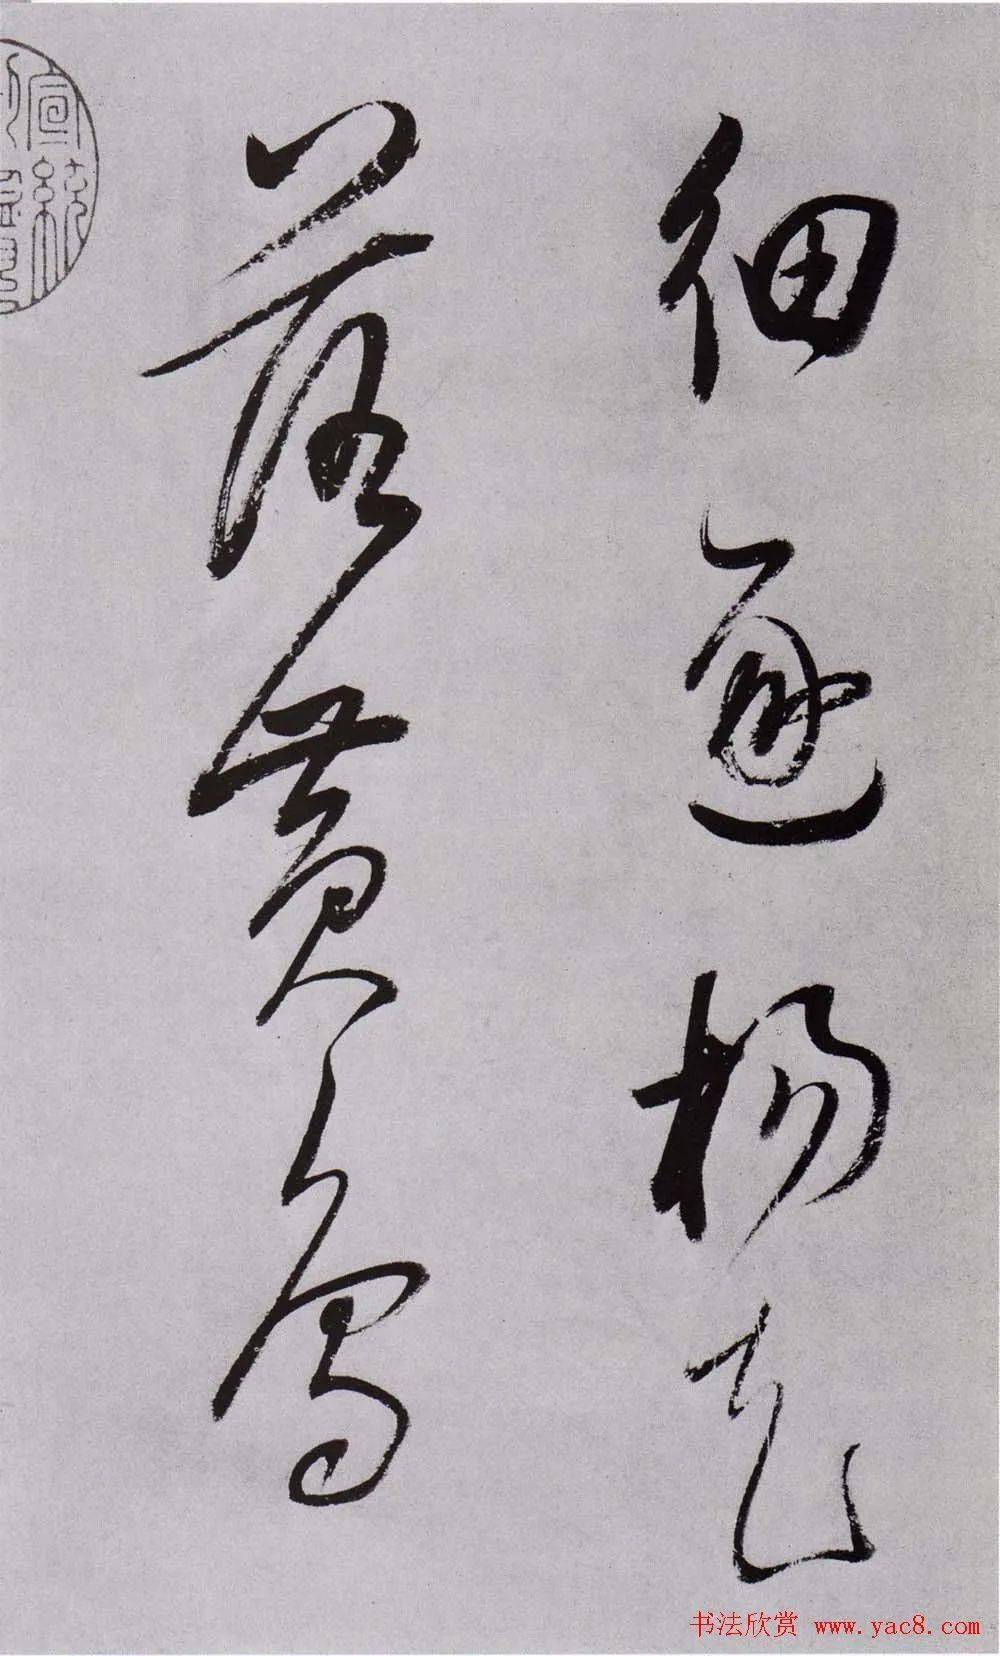 細逐楊花
落黃鳥
宣統
书法欣赏 www.yac8.com